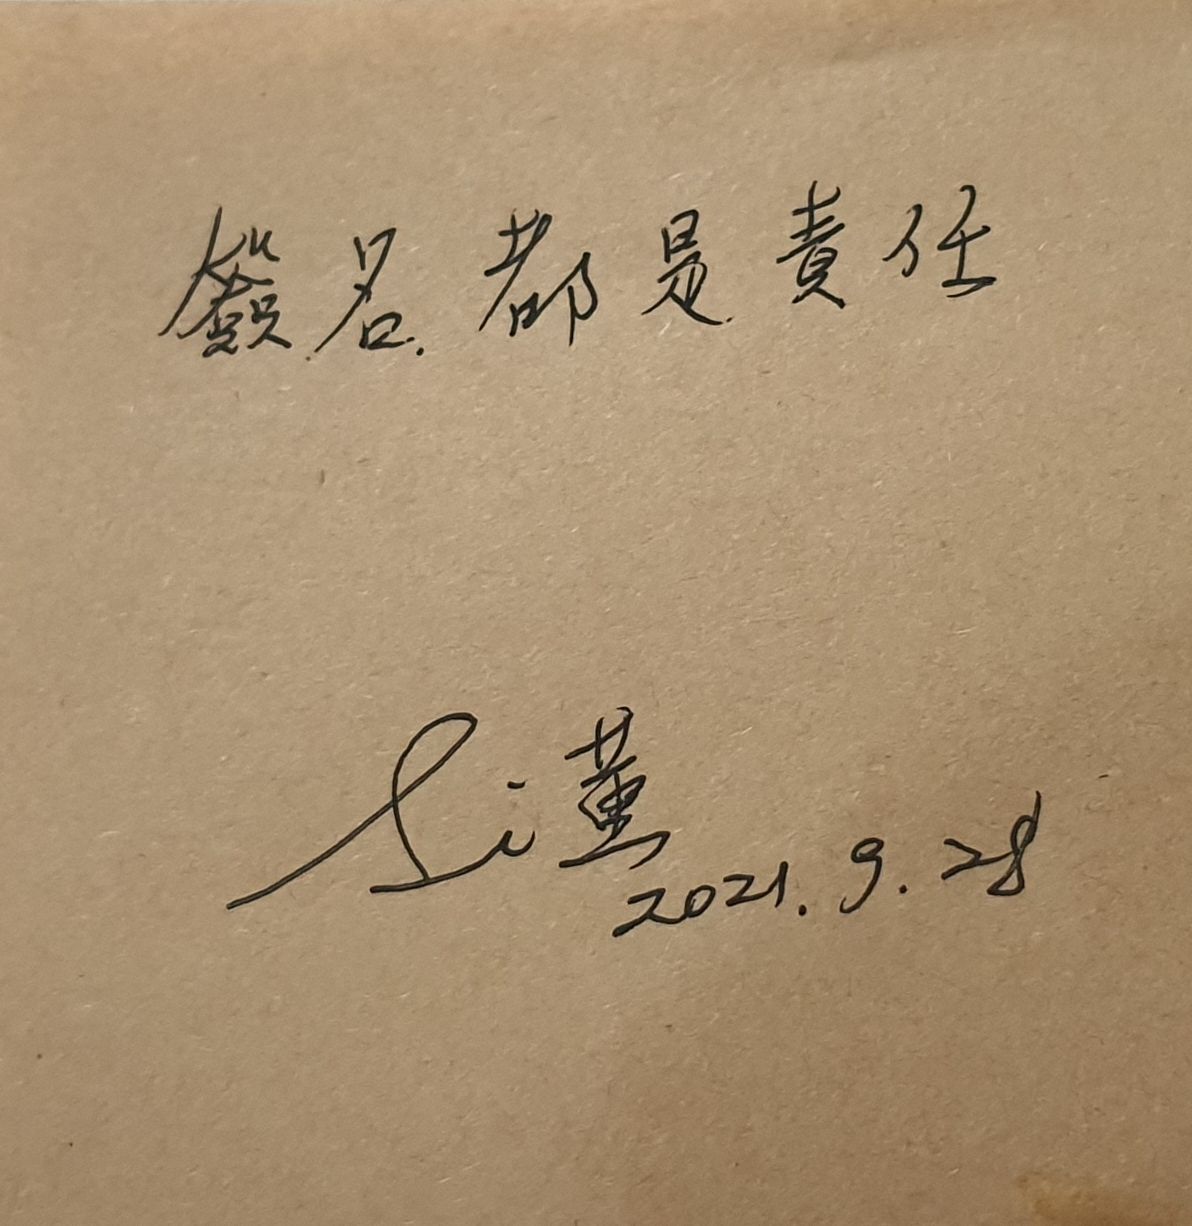 簽名都是責任
Li董
2021.9.28